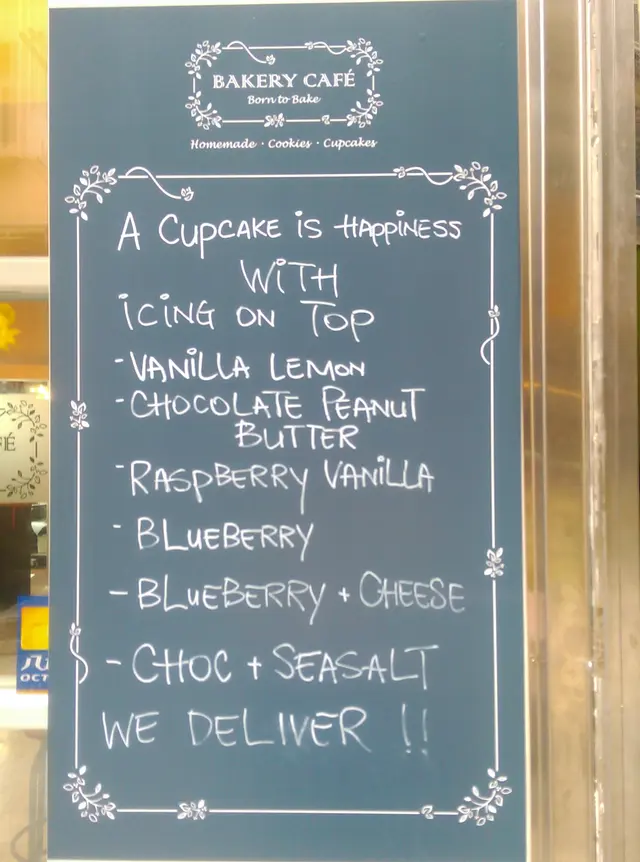 BAKERY CAFÉ
Born to Bake
Homemade · Cookies · Cupcakes
A CUPCAKE iS HAPPiNESS
WiTH
iCiNG ON TOP
-VANiLLA LEMON
-CHOCOLATE PEANUT
BUTTER
-RASPBERRY VANiLLA
- BLUEBERRY
- BLUEBERRY + CHEESE
- CHOC + SEASALT
WE DELIVER !!
FÉ
OCT